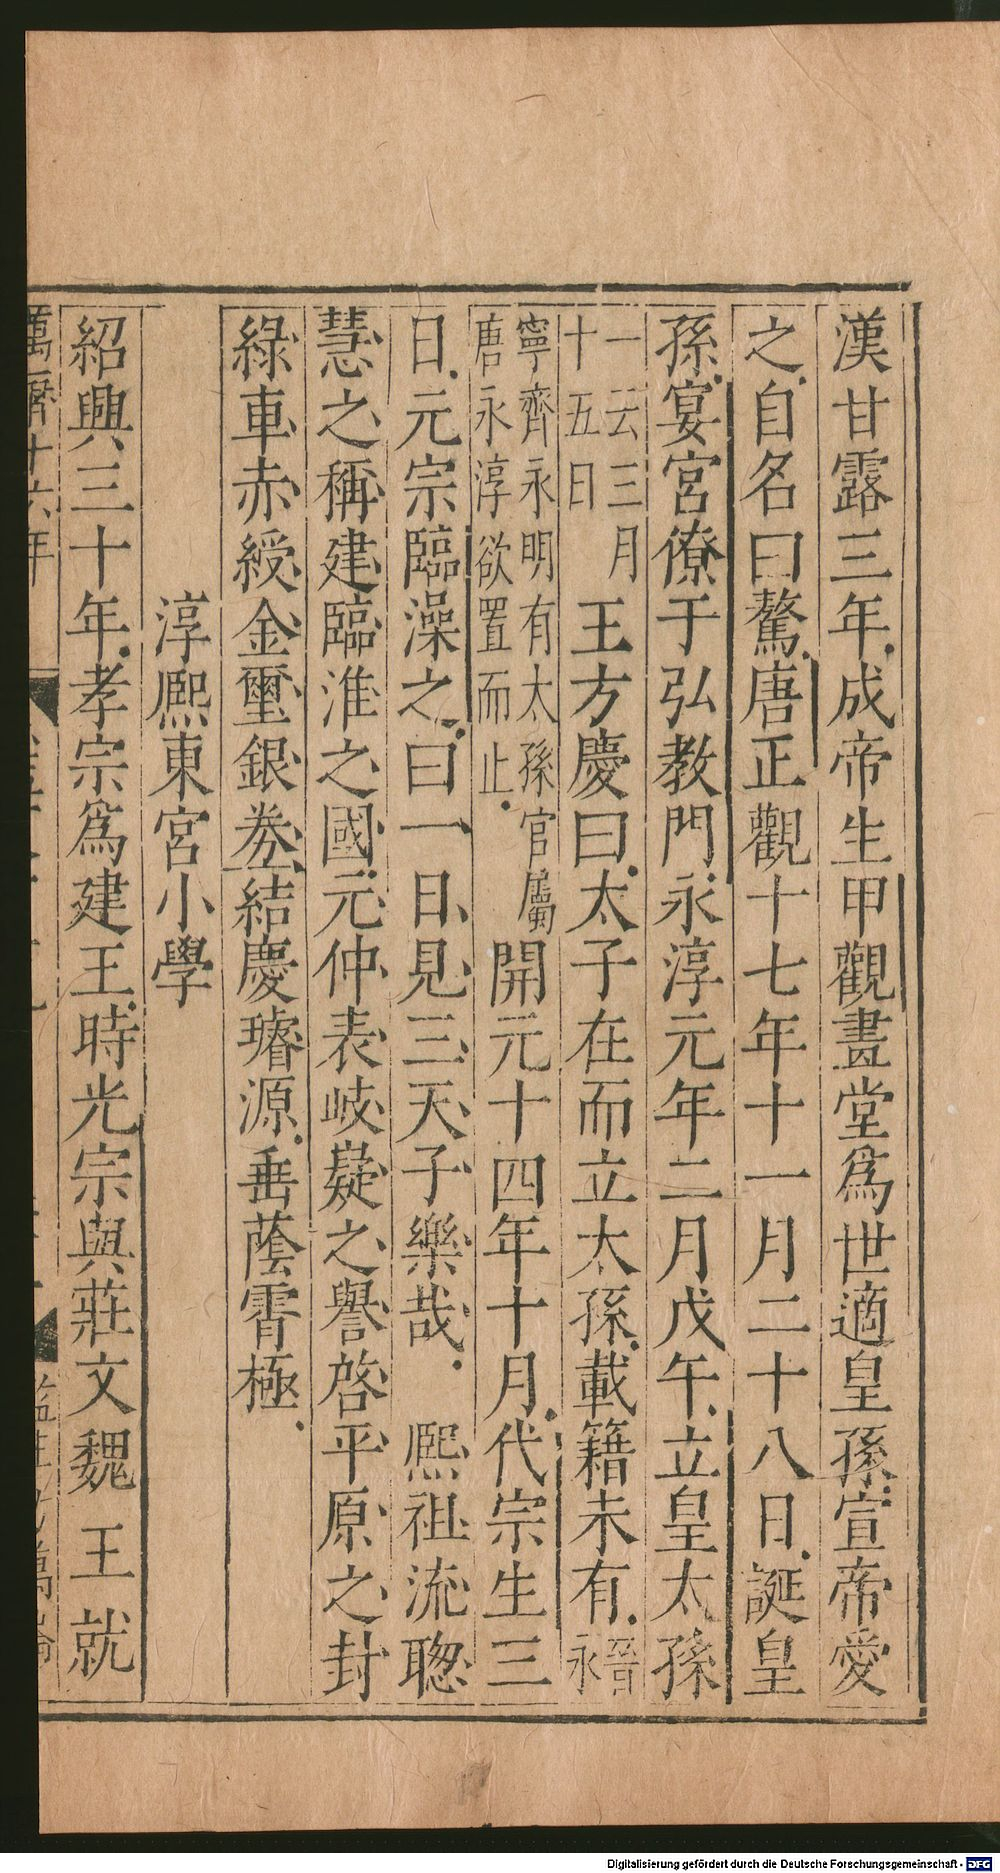 漢甘露三年成帝生甲觀畫堂爲世適皇孫宣帝愛
之自名曰驁唐正觀十七年十一月二十八日誕皇
孫宴宮僚于弘教門永淳元年二月戊午立皇太孫
一云三月
十五日
王方慶曰太子在而立太孫載籍未有
晉永
寧齊永明有太孫官屬
唐永淳欲置而止
開元十四年十月代宗生三
日元宗臨澡之曰一日見三天子樂哉 熙祖流聦
慧之稱建臨淮之國元仲表岐嶷之譽啓平原之封
綠車赤綬金璽銀劵結慶璿源垂蔭霄極
淳熈東宮小學
紹興三十年孝宗爲建王時光宗與莊文魏王就
萬曆十六年
Digitalisierung gefördert durch die Deutsche Forschungsgemeinschaft - DFG